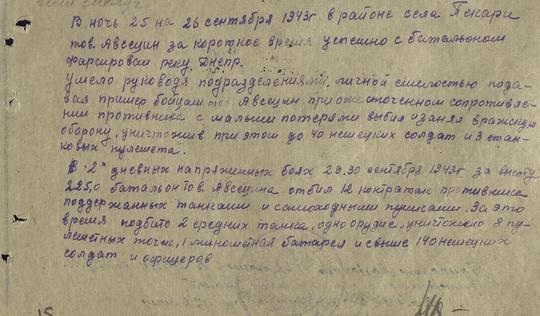 В ночь 25 на 26 сентября 1943г в районе села Пекари
тов. Авсецин за короткое время успешно с батальоном
фарсировал реку Днепр.
умело руководя подразделениями, личной смелостью пода-
вая пример бойцам тов. Авсецин при ожесточенном сопротивле-
нии противника с малыми потерями выбил и занял вражскую
оборону, уничтожив при этом до 40 немецких солдат и 3 стан-
ковых пулемета.
В 2х дневных напряженных боях 29.30 сентября 1943г за высоту
225,0 батальон тов. Авсецина отбил 12 контратак противника
поддержанных танками и самоходными пушками. За это
время подбито 2 средних танка, одно орудие, уничтожено 8 пу-
леметных точек, 1 минометная батарея и свыше 140 немецких
солдат и офицеров